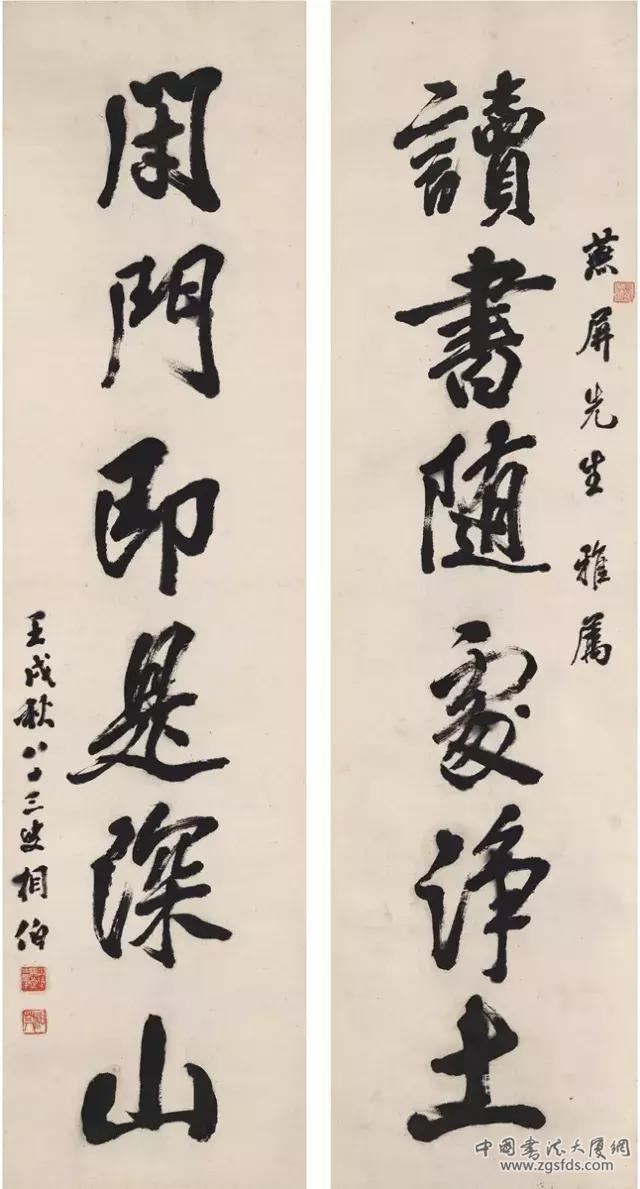 燕屏先生雅屬
讀書随處淨土
閉門即是深山
壬戌秋八十三叟相伯
中國書法大厦網
www.zgsfds.com